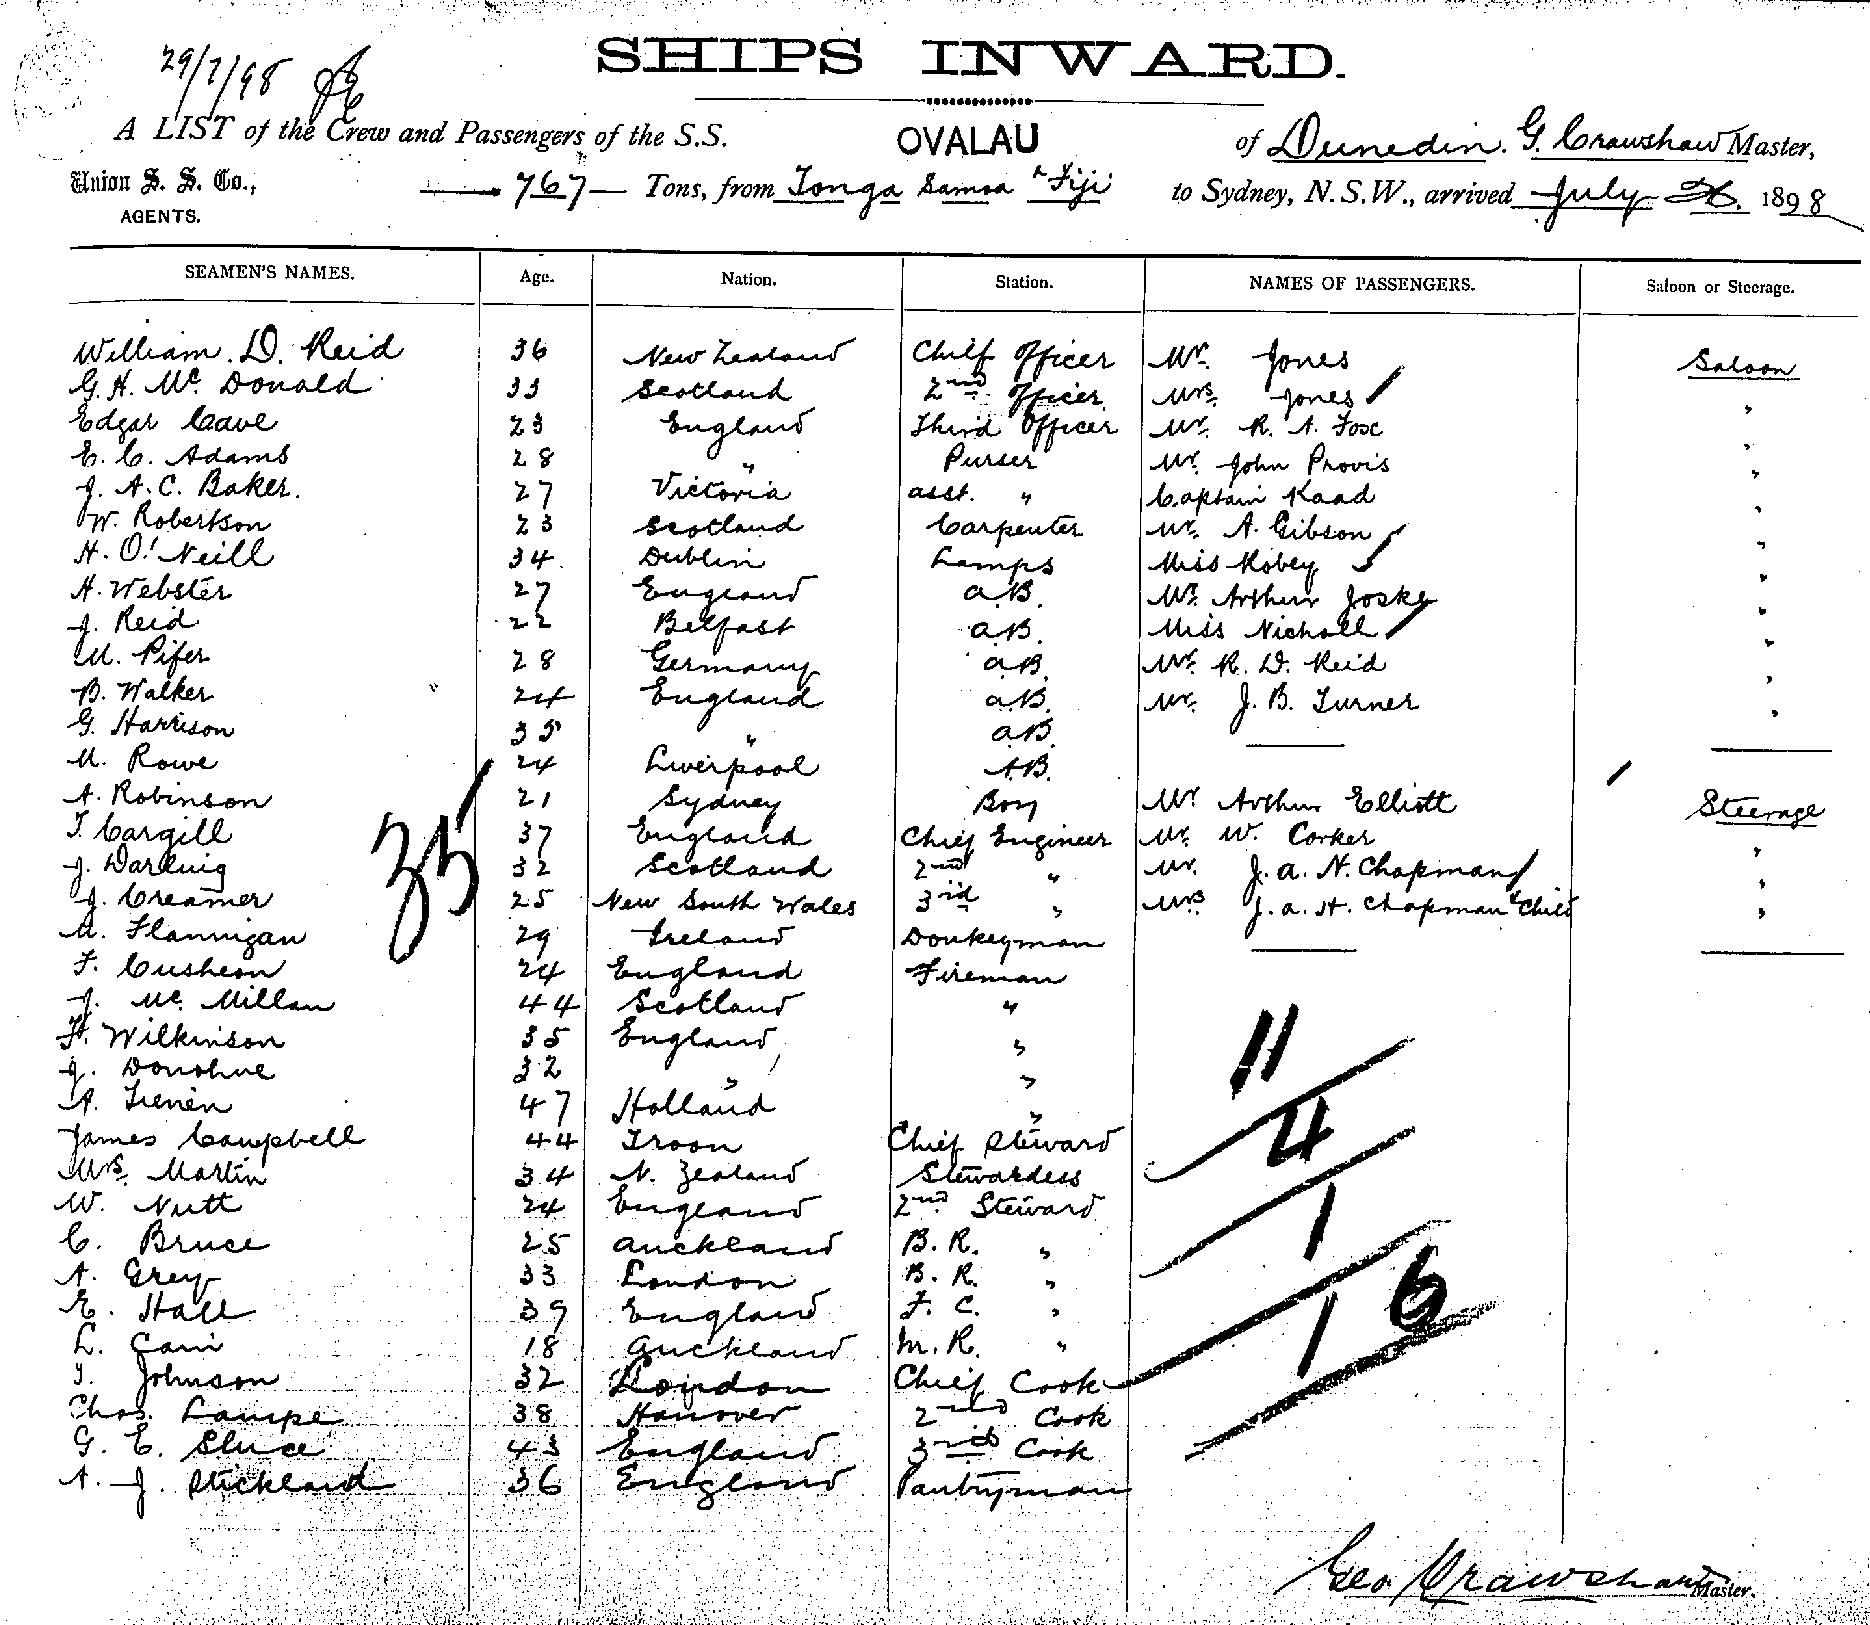 SHIPS INWARD.
29/7/98
A LIST of the Crew and Passengers of the S.S. OVALAU of Dunedin. G. Crawshaw Master,
Union S. S. Co., 767 Tons, from Tonga Samoa & Fiji to Sydney, N.S.W., arrived July 1898
AGENTS.
SEAMEN'S NAMES. Age. Nation. Station. NAMES OF PASSENGERS. Saloon or Steerage.
William. D. Reid 36 New Zealand Chief Officer Mr. Jones Saloon
G. H. Mc. Donald 33 Scotland 2nd Officer Mrs. Jones "
Edgar Cave 23 England Third Officer Mr. R. A. Fox "
E. C. Adams 28 " Purser Mr. John Provis "
J. A. C. Baker. 27 Victoria asst. " Captain Kaad "
W. Robertson 23 Scotland Carpenter Mr. A. Gibson "
H. O'Neill 34 Dublin Lamps Miss Mobey "
H. Webster 27 England A.B. Mr. Arthur Joske "
J. Reid 22 Belfast A.B. Miss Nicholl "
M. Pifer 28 Germany A.B. Mr. R. D. Reid "
B. Walker 24 England A.B. Mr. J. B. Turner "
G. Harrison 35 " A.B.
M. Rowe 24 Liverpool A.B.
A. Robinson 21 Sydney Boy Mr Arthur Elliott Steerage
T. Cargill 37 England Chief Engineer Mr. W. Corker "
J. Darling 32 Scotland 2nd " Mr. J. A. N. Chapman "
J. Creamer 25 New South Wales 3rd " Mrs J. A. H. Chapman & Child "
35
M. Flannigan 29 Ireland Donkeyman
F. Cusheon 24 England Fireman
J. Mc. Millan 44 Scotland "
H. Wilkinson 35 England "
J. Donohue 32 " "
A. 47 Holland "
James Campbell 44 Troon Chief Steward
Mrs. Martin 34 N. Zealand Stewardess
W. Nutt 24 England 2nd Steward
C. Bruce 25 Auckland B. R. "
A. Grey 33 London B. R. "
E. Hall 39 England F. C. "
L. Cain 18 Auckland M. R. "
T. Johnson 32 London Chief Cook
Chas. Lampe 38 Hanover 2nd Cook
G. E. Sluce 43 England 3rd Cook
A. J. Stickland 36 England Pantryman
11
4
1
16
Geo Crawshaw Master.